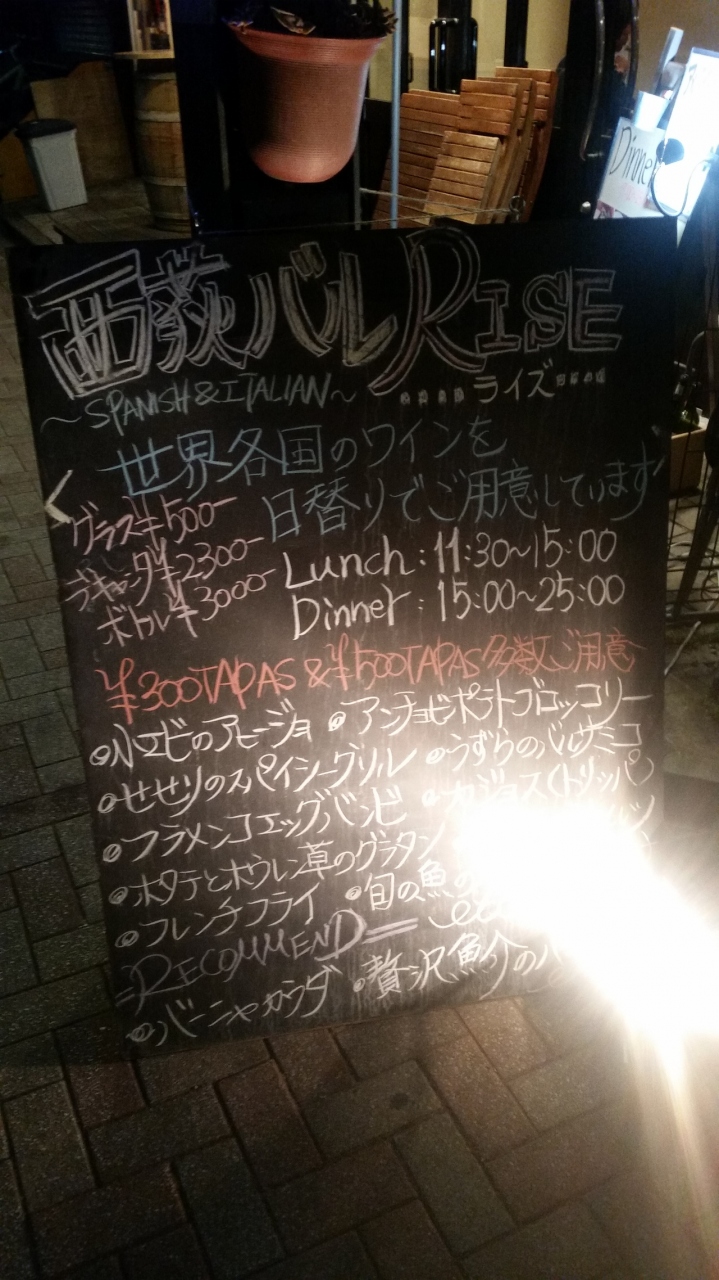 西荻バルRISE
～SPANISH & ITALIAN～ ‥‥ライズ‥‥
世界各国のワインを
日替りでご用意しています
グラス¥500-
デキャンタ¥2300-
ボトル¥3000-
Lunch : 11:30～15:00
Dinner : 15:00～25:00
¥300TAPAS & ¥500TAPAS多数ご用意
◎小エビのアヒージョ ◎アンチョビポテトブロッコリー
◎せせりのスパイシーグリル ◎うずらのバルサミコ
◎フラメンコエッグバンビ ◎カジョス(トリッパ)
◎ホタテとホウレン草のグラタン
◎フレンチフライ ◎旬の魚の
=RECOMMEND=
◎バーニャカウダ ◎贅沢魚介の
Dinner